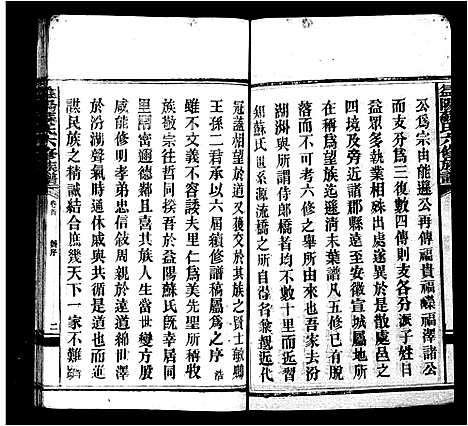 益陽蘇氏六修族譜
公爲宗由能遜公再傳福貴福嶸福澤諸公
而支分爲三復四傳則支各分派子姓日
眾多執業相殊出處遂異於是散處邑之
四境及旁近諸郡縣遠至安徽宣城屬地所
在相望遂成望族迄清末葉譜凡五修已有
落而不可考六修之舉所由來也吾家去汾
湖洲侍郎橋者均不數十里而近習
知蘇氏邑系源流橋之所自得者象親近末
冠蓋相望於道又獲交於其族之賢士敏聰
王孫二君承以六屆續修譜稿屬爲之序浩
雖不文義不容諉夫聖里先聖所稱收
族敬宗往哲同揆吾於益陽蘇氏既幸居同
里閈密邇德鄰且喜其族人生當世變方
咸能修明孝弟忠信敘周親於遠道綿世澤
於汾湖聲氣時通休戚與共循是道也或由
謀民族之精誠結合庶幾天下一家不難
益陽蘇氏六修族譜
卷首
二